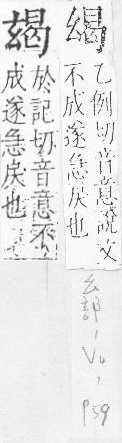 乙例切音意說文
不成遂急戾也
於記切音意不
成遂急戾也
幺部, V4, P59